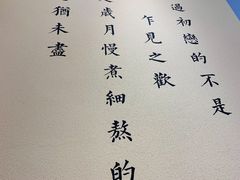 過初戀的不是
乍見之歡
歲月慢煮細熬的
猶未盡